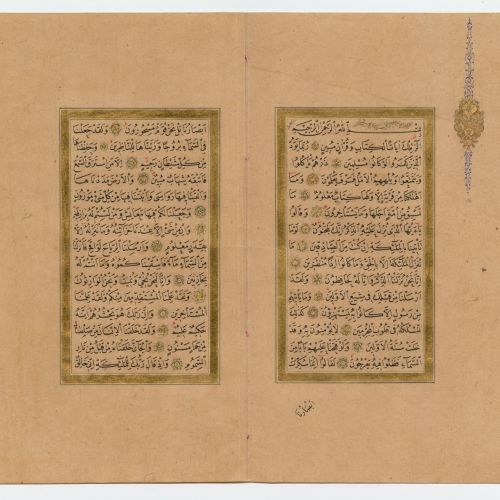 بسم الله الرحمن الرحيم
الر تلك آيات الكتاب وقرآن مبين ۝ ربما يود
الذين كفروا لو كانوا مسلمين ۝ ذرهم يأكلوا
ويتمتعوا ويلههم الأمل فسوف يعلمون ۝ وما
أهلكنا من قرية إلا ولها كتاب معلوم ۝ ما
تسبق من أمة أجلها وما يستأخرون ۝ وقالوا
يا أيها الذي نزل عليه الذكر إنك لمجنون ۝ لو ما
تأتينا بالملئكة إن كنت من الصادقين ۝ ما
ننزل الملئكة إلا بالحق وما كانوا إذا منظرين ۝
إنا نحن نزلنا الذكر وإنا له لحافظون ۝ ولقد
أرسلنا من قبلك في شيع الأولين ۝ وما يأتيهم
من رسول إلا كانوا به يستهزؤن ۝ كذلك
نسلكه في قلوب المجرمين ۝ لا يؤمنون به وقد
خلت سنة الأولين ۝ ولو فتحنا عليهم بابا من
السماء فظلوا فيه يعرجون ۝ لقالوا إنما سكرت
أبصارنا
أبصارنا بل نحن قوم مسحورون ۝ ولقد جعلنا
في السماء بروجا وزيناها للناظرين ۝ وحفظناها
من كل شيطان رجيم ۝ إلا من استرق السمع
فأتبعه شهاب مبين ۝ والأرض مددناها
وألقينا فيها رواسي وأنبتنا فيها من كل شيء موزون
۝ وجعلنا لكم فيها معايش ومن لستم له برازقين
۝ وإن من شيء إلا عندنا خزائنه وما ننزله إلا
بقدر معلوم ۝ وأرسلنا الرياح لواقح فأنزلنا
من السماء ماء فأسقيناكموه وما أنتم له
بخازنين ۝ وإنا لنحن نحيي ونميت ونحن الوارثون
۝ ولقد علمنا المستقدمين منكم ولقد علمنا
المستأخرين ۝ وإن ربك هو يحشرهم إنه
حكيم عليم ۝ ولقد خلقنا الإنسان من صلصال
من حمإ مسنون ۝ والجان خلقناه من قبل من نار
السموم ۝ وإذ قال ربك للملئكة إني خالق